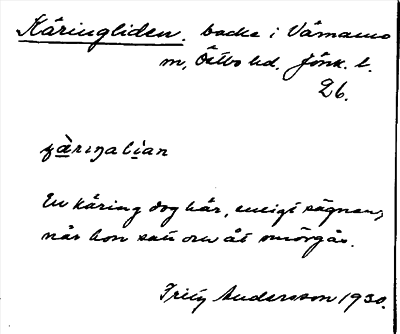 Käringliden. backe i Värnamo
m, Östbo hd. Jönk. l.
26.
çæ̀riŋalían
En käring dog här, enligt sägnen,
när hon satt och åt smörgås.
Fritz Andersson 1930.